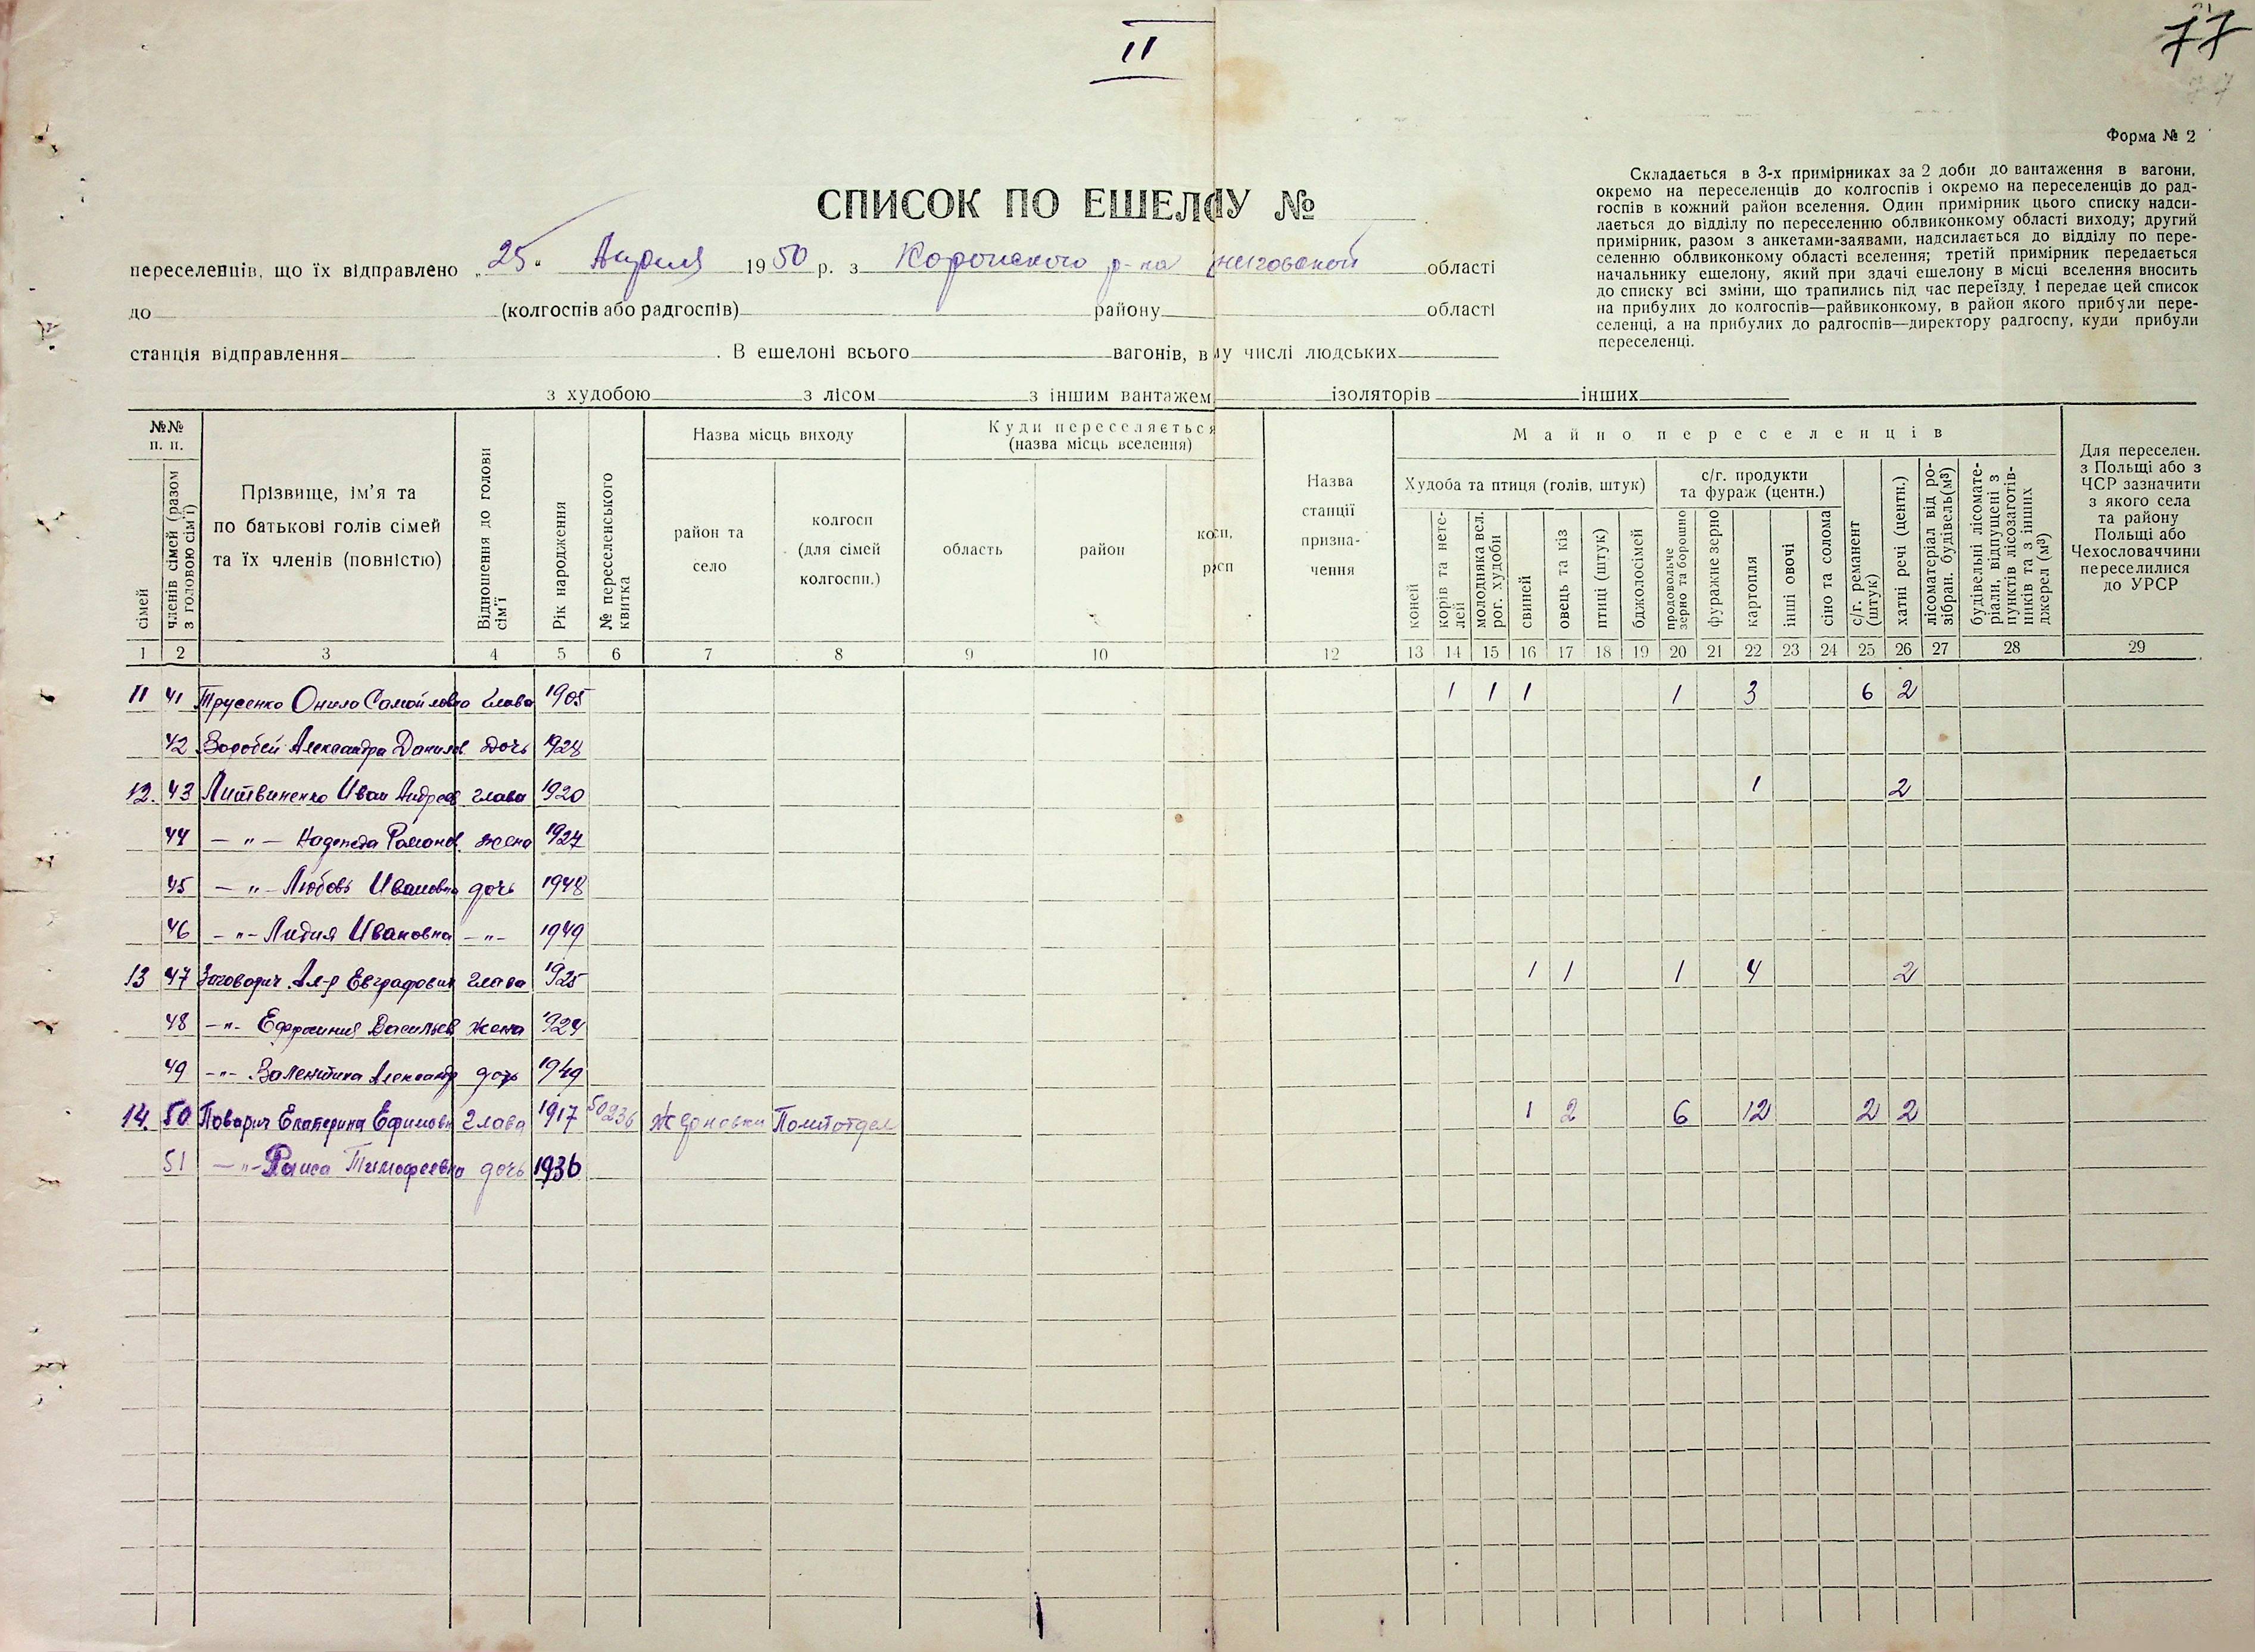 II
77
Форма № 2
Складається в 3-х примірниках за 2 доби до вантаження в вагони,
окремо на переселенців до колгоспів і окремо на переселенців до рад-
госпів в кожний район вселення. Один примірник цього списку надси-
лається до відділу по переселенню облвиконкому області виходу; другий
примірник, разом з анкетами-заявами, надсилається до відділу по пере-
селенню облвиконкому області вселення; третій примірник передається
начальнику ешелону, який при здачі ешелону в місці вселення вносить
до списку всі зміни, що трапились під час переїзду, і передає цей список
на прибулих до колгоспів—райвиконкому, в район якого прибули пере-
селенці, а на прибулих до радгоспів—директору радгоспу, куди прибули
переселенці.
СПИСОК ПО ЕШЕЛОУ №
переселенців, що їх відправлено „25“ Апреля 1950 р. з Коропского р-на ниговской області
до (колгоспів або радгоспів) району області
станція відправлення . В ешелоні всього вагонів, в му числі людських
з худобою з лісом з іншим вантажем ізоляторів інших
№№ п. п.
сімей
членів сімей (разом з головою сім'ї)
Прізвище, ім'я та по батькові голів сімей та їх членів (повністю)
Відношення до голови сім'ї
Рік народження
№ переселенського квитка
Назва місць виходу
район та село
колгосп (для сімей колгоспн.)
Куди переселяється (назва місць вселення)
область
район
Назва станції призна- чення
Майно переселенців
Худоба та птиця (голів, штук)
коней
корів та нете- лей
молодняка вел. рог. худоби
свиней
овець та кіз
птиці (штук)
бджолосімей
с/г. продукти та фураж (центн.)
продовольче зерно та борошно
фуражне зерно
картопля
інші овочі
сіно та солома
с/г. реманент (штук)
хатні речі (центн.)
лісоматеріал від ро- зібран. будівель(м³)
будівельні лісомате- ріали, відпущені з пунктів лісозаготів- ників та з інших джерел (м³)
Для переселен. з Польщі або з ЧСР зазначити з якого села та району Польщі або Чехословаччини переселилися до УРСР
1 2 3 4 5 6 7 8 9 10 12 13 14 15 16 17 18 19 20 21 22 23 24 25 26 27 28 29
11 41 Трусенко Самойловна глава 1905 1 1 1 1 3 6 2
42 Воробей Александра Данилов. дочь 1928
12. 43 Литвиненко Иван Андреев глава 1920 1 2
44 — " — Надежда Романов. жена 1927
45 — " — Любовь Ивановна дочь 1948
46 — " — Лидия Ивановна — " — 1949
13 47 Ал-р Евграфович глава 1925 1 1 1 4 2
48 — " — Ефросиния Васильев жена 1924
49 — " — Валентина Александр дочь 1949
14. 50 Поварич Екатерина Ефимовн глава 1917 50236 Жерновки Политотдел 1 2 6 12 2 2
51 — " — Раиса Тимофеевна дочь 1936